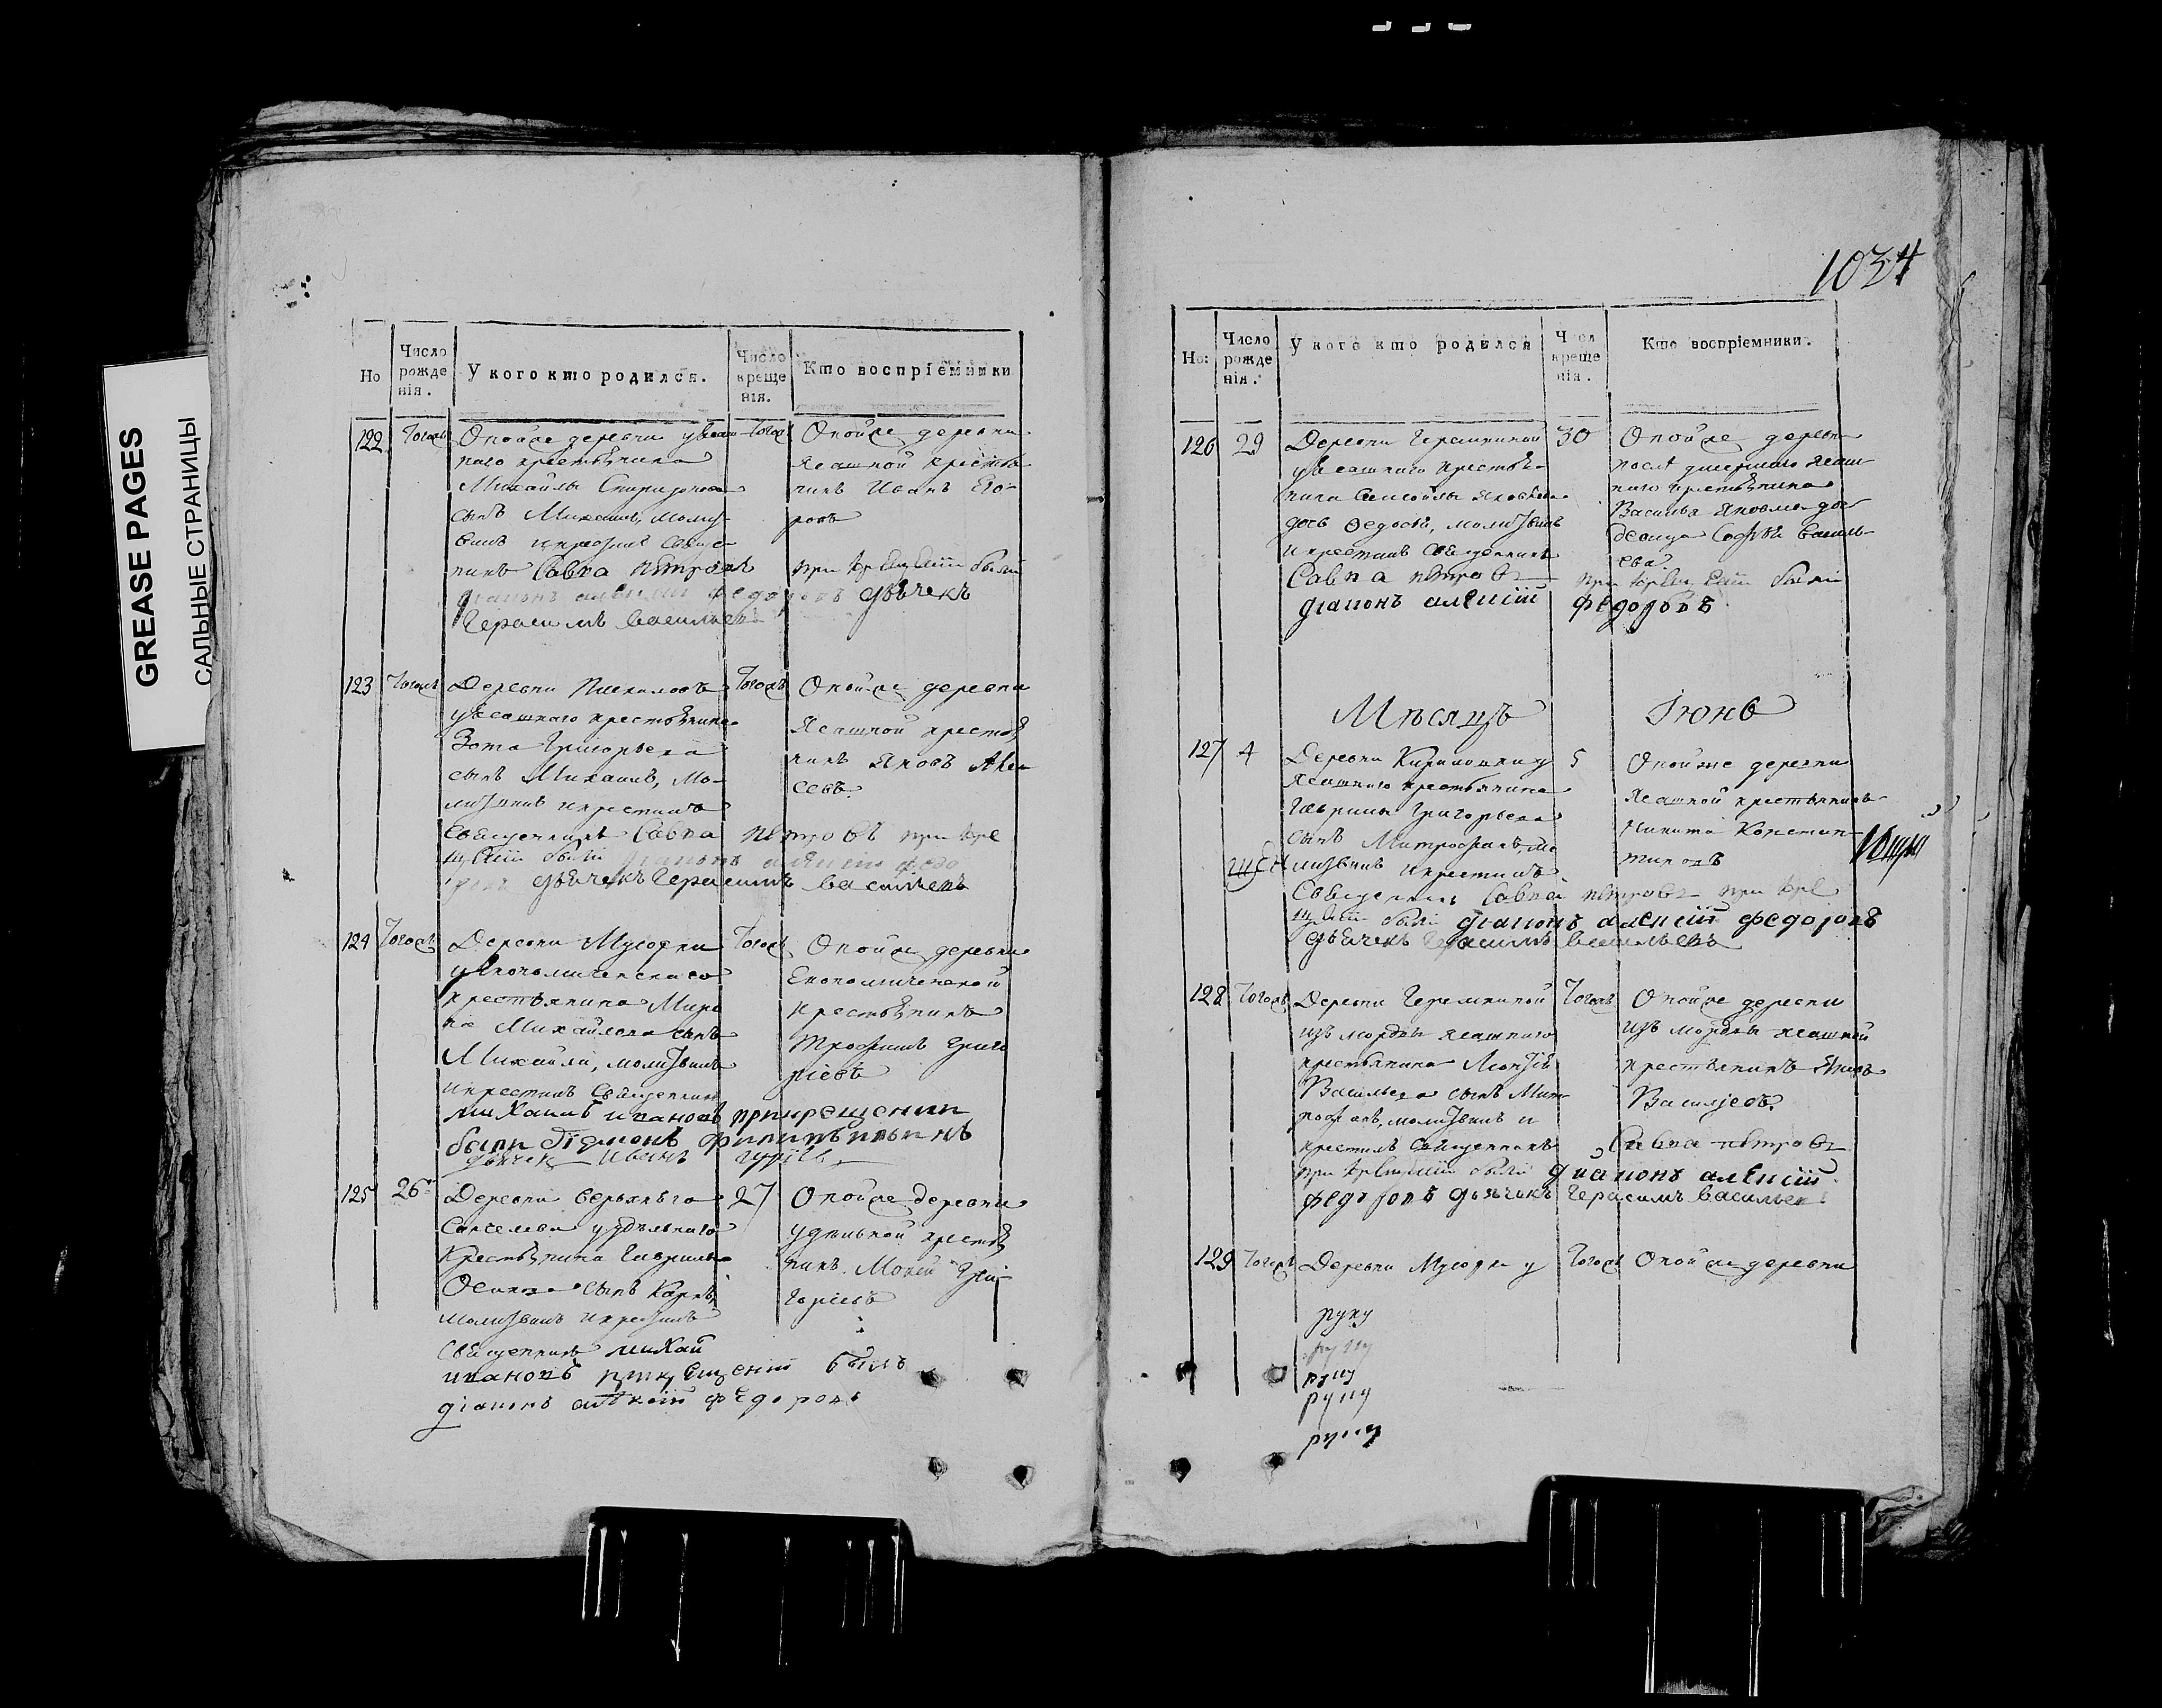 GREASE PAGES
САЛЬНЫЕ СТРАНИЦЫ
Но
Число рожде нія.
У кого кто родился.
Число креще нія.
Кто воспріемники
122
Тогож
Оной же деревни
наго крестьянина
Михайлы Спиридонова
сынъ Михаилъ, молит-
вилъ и крестилъ священ-
никъ Савва петровъ
Герасимъ васильевъ
Тогож
Оной же деревни
Ясашной крестья
нинъ Иванъ
ровъ
при крещеніи были
дьячекъ
123
Тогожъ
Деревни
уясашнаго крестьянина
Зота Григорьева
сынъ Михаилъ, мо-
литвилъ и крестилъ
священникъ Савва петровъ при кре
щеніи были діаконъ алексіи федо
ровъ дьячекъ Герасимъ васильевъ
Тогожъ
Оной же деревни
Ясашной крестья
нинъ Яковъ Алек
сеевъ.
124
Тогожъ
Деревни Мусорки
уекономическаго
крестьянина Миро
на Михайлова сынъ
Михайла, молитвилъ
и крестилъ священникъ
михаилъ ивановъ при крещении
были діаконъ филипъ ильинъ
дьячек иванъ
Тогож
Оной же деревни
Економической
крестьянинъ
Трофимъ Григо
рьевъ
125
26
Деревни
уудѣльнаго
крестьянина Гаврилы
Осипова сынъ Карпъ,
молитвилъ и крестилъ
священникъ михаи
ивановъ при крещеніи былъ
діаконъ алексіи федоровъ
27
Оной же деревни
удѣльной крестья
нинъ Мокей Гри-
горьевъ
1034
Но:
Число рожде нія.
У кого кто родился
Числ креще нія.
Кто воспріемники.
126
29
Деревни Геремкиной
уясашнаго крестья-
нина Самойлы Яковлева
дочь Федосья, молитвилъ
и крестилъ священникъ
Савва петровъ
діаконъ алексіи федоровъ
30
Оной же деревни
послѣ умершаго ясаш-
наго крестьянина
Василья Яковлева доч
девица Софья Василь-
ева.
при крещеніи были
Мѣсяцъ
Іюнь
127
4
Деревни у
ясашнаго крестьянина
Гаврилы Григорьева
сынъ Митрофанъ, мо
литвилъ и крестилъ
Священникъ Савва петровъ при кре
щеніи были діаконъ алексіи федоровъ
дьячекъ Герасимъ васильевъ
5
Оной же деревни
ясашной крестьянинъ
Никита Констан-
тиновъ
128
Тогожъ
Деревни Геремкиной
изъ мордвы ясашнаго
крестьянина
Васильева сынъ Мит-
рофанъ, молитвилъ и
крестилъ священникъ Савва петровъ
при крещеніи были діаконъ алексіи
федоровъ дьячекъ Герасимъ васильевъ
Тогожъ
Оной же деревни
изъ мордвы ясашной
крестьянинъ Яковъ
Васильевъ.
129
Тогожъ
Деревни Мусорки у
Тогожъ
Оной же деревни
руку
руку
руку
руку
руку